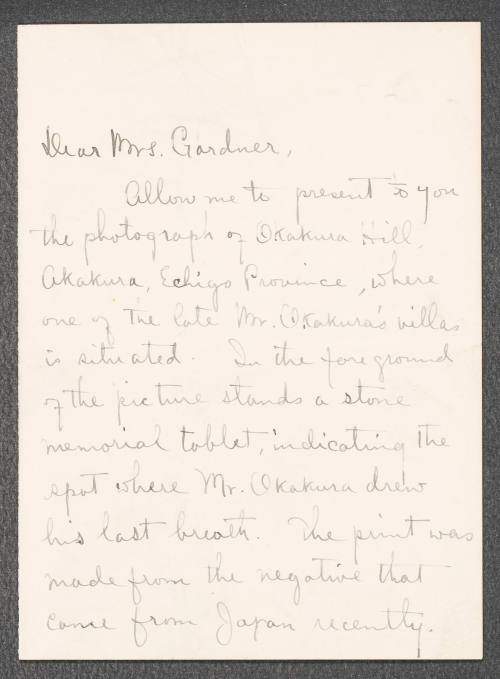 Dear Mrs. Gardner,
Allow me to present to you
the photograph of Okakura Hill,
Akakura, Echigo Province, where
one of the late Mr. Okakura's villas
is situated. In the foreground
of the picture stands a stone
memorial tablet, indicating the
spot where Mr. Okakura drew
his last breath. The print was
made from the negative that
came from Japan recently.